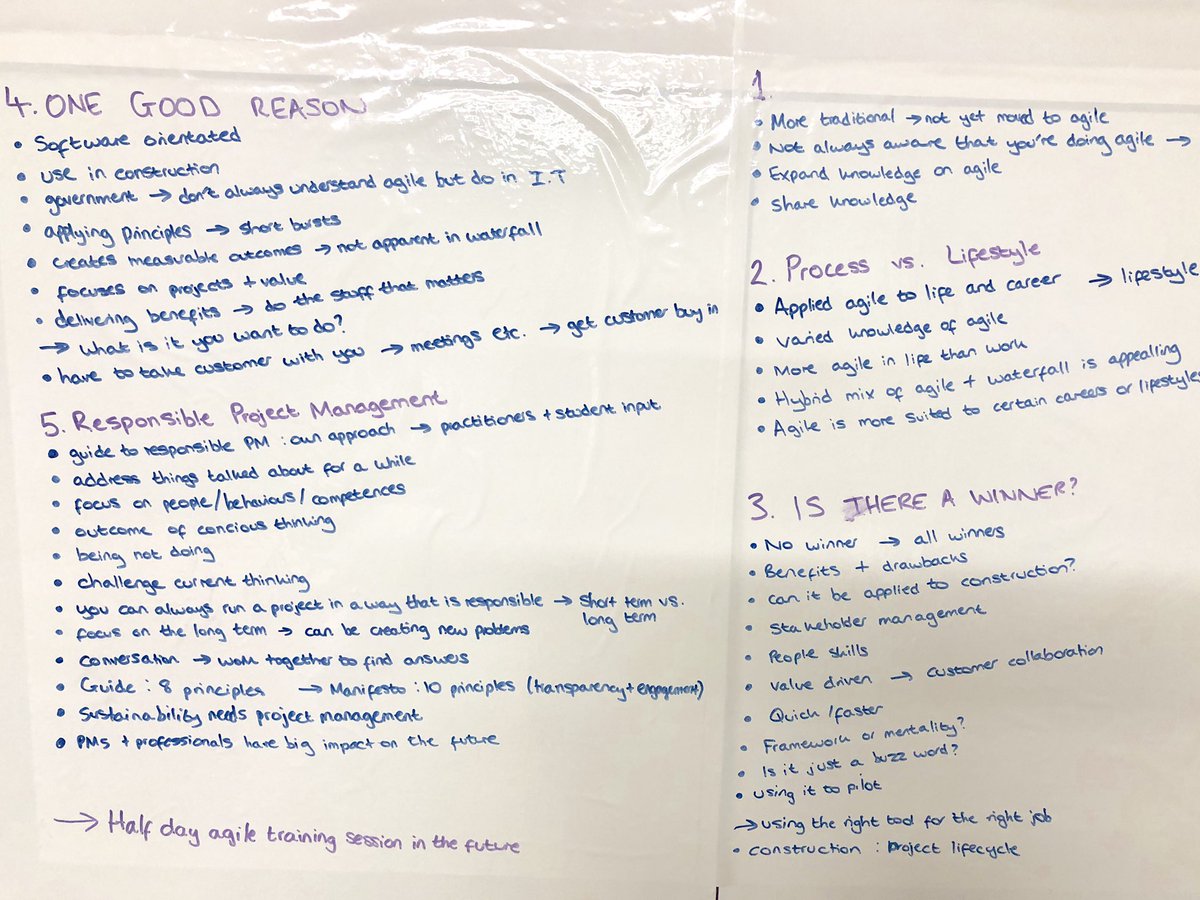 4. ONE GOOD REASON
• Software orientated
• use in construction
• government → don't always understand agile but do in I.T
• applying principles → short bursts
• creates measurable outcomes → not apparent in waterfall
• focuses on projects + value
• delivering benefits → do the stuff that matters
→ what is it you want to do?
• have to take customer with you → meetings etc. → get customer buy in
5. Responsible Project Management
• guide to responsible PM : own approach → practitioners + student input
• address things talked about for a while
• focus on people/behaviours/competences
• outcome of concious thinking
• being not doing
• challenge current thinking
• you can always run a project in a way that is responsible → short term vs.
long term
• focus on the long term → can be creating new problems
• conversation → work together to find answers
• Guide : 8 principles → Manifesto : 10 principles (transparency + engagement)
• Sustainability needs project management
• PMs + professionals have big impact on the future
→ Half day agile training session in the future
1.
• More traditional → not yet moved to agile
• Not always aware that you're doing agile →
• Expand knowledge on agile
• Share knowledge
2. Process vs. Lifestyle
• Applied agile to life and career → lifestyle
• varied knowledge of agile
• More agile in life than work
• Hybrid mix of agile + waterfall is appealling
• Agile is more suited to certain careers or lifestyles
3. IS THERE A WINNER?
• No winner → all winners
• Benefits + drawbacks
• can it be applied to construction?
• Stakeholder management
• People skills
• value driven → customer collaboration
• Quick/faster
• Framework or mentality?
• Is it just a buzz word?
• using it to pilot
→ using the right tool for the right job
• construction : project lifecycle